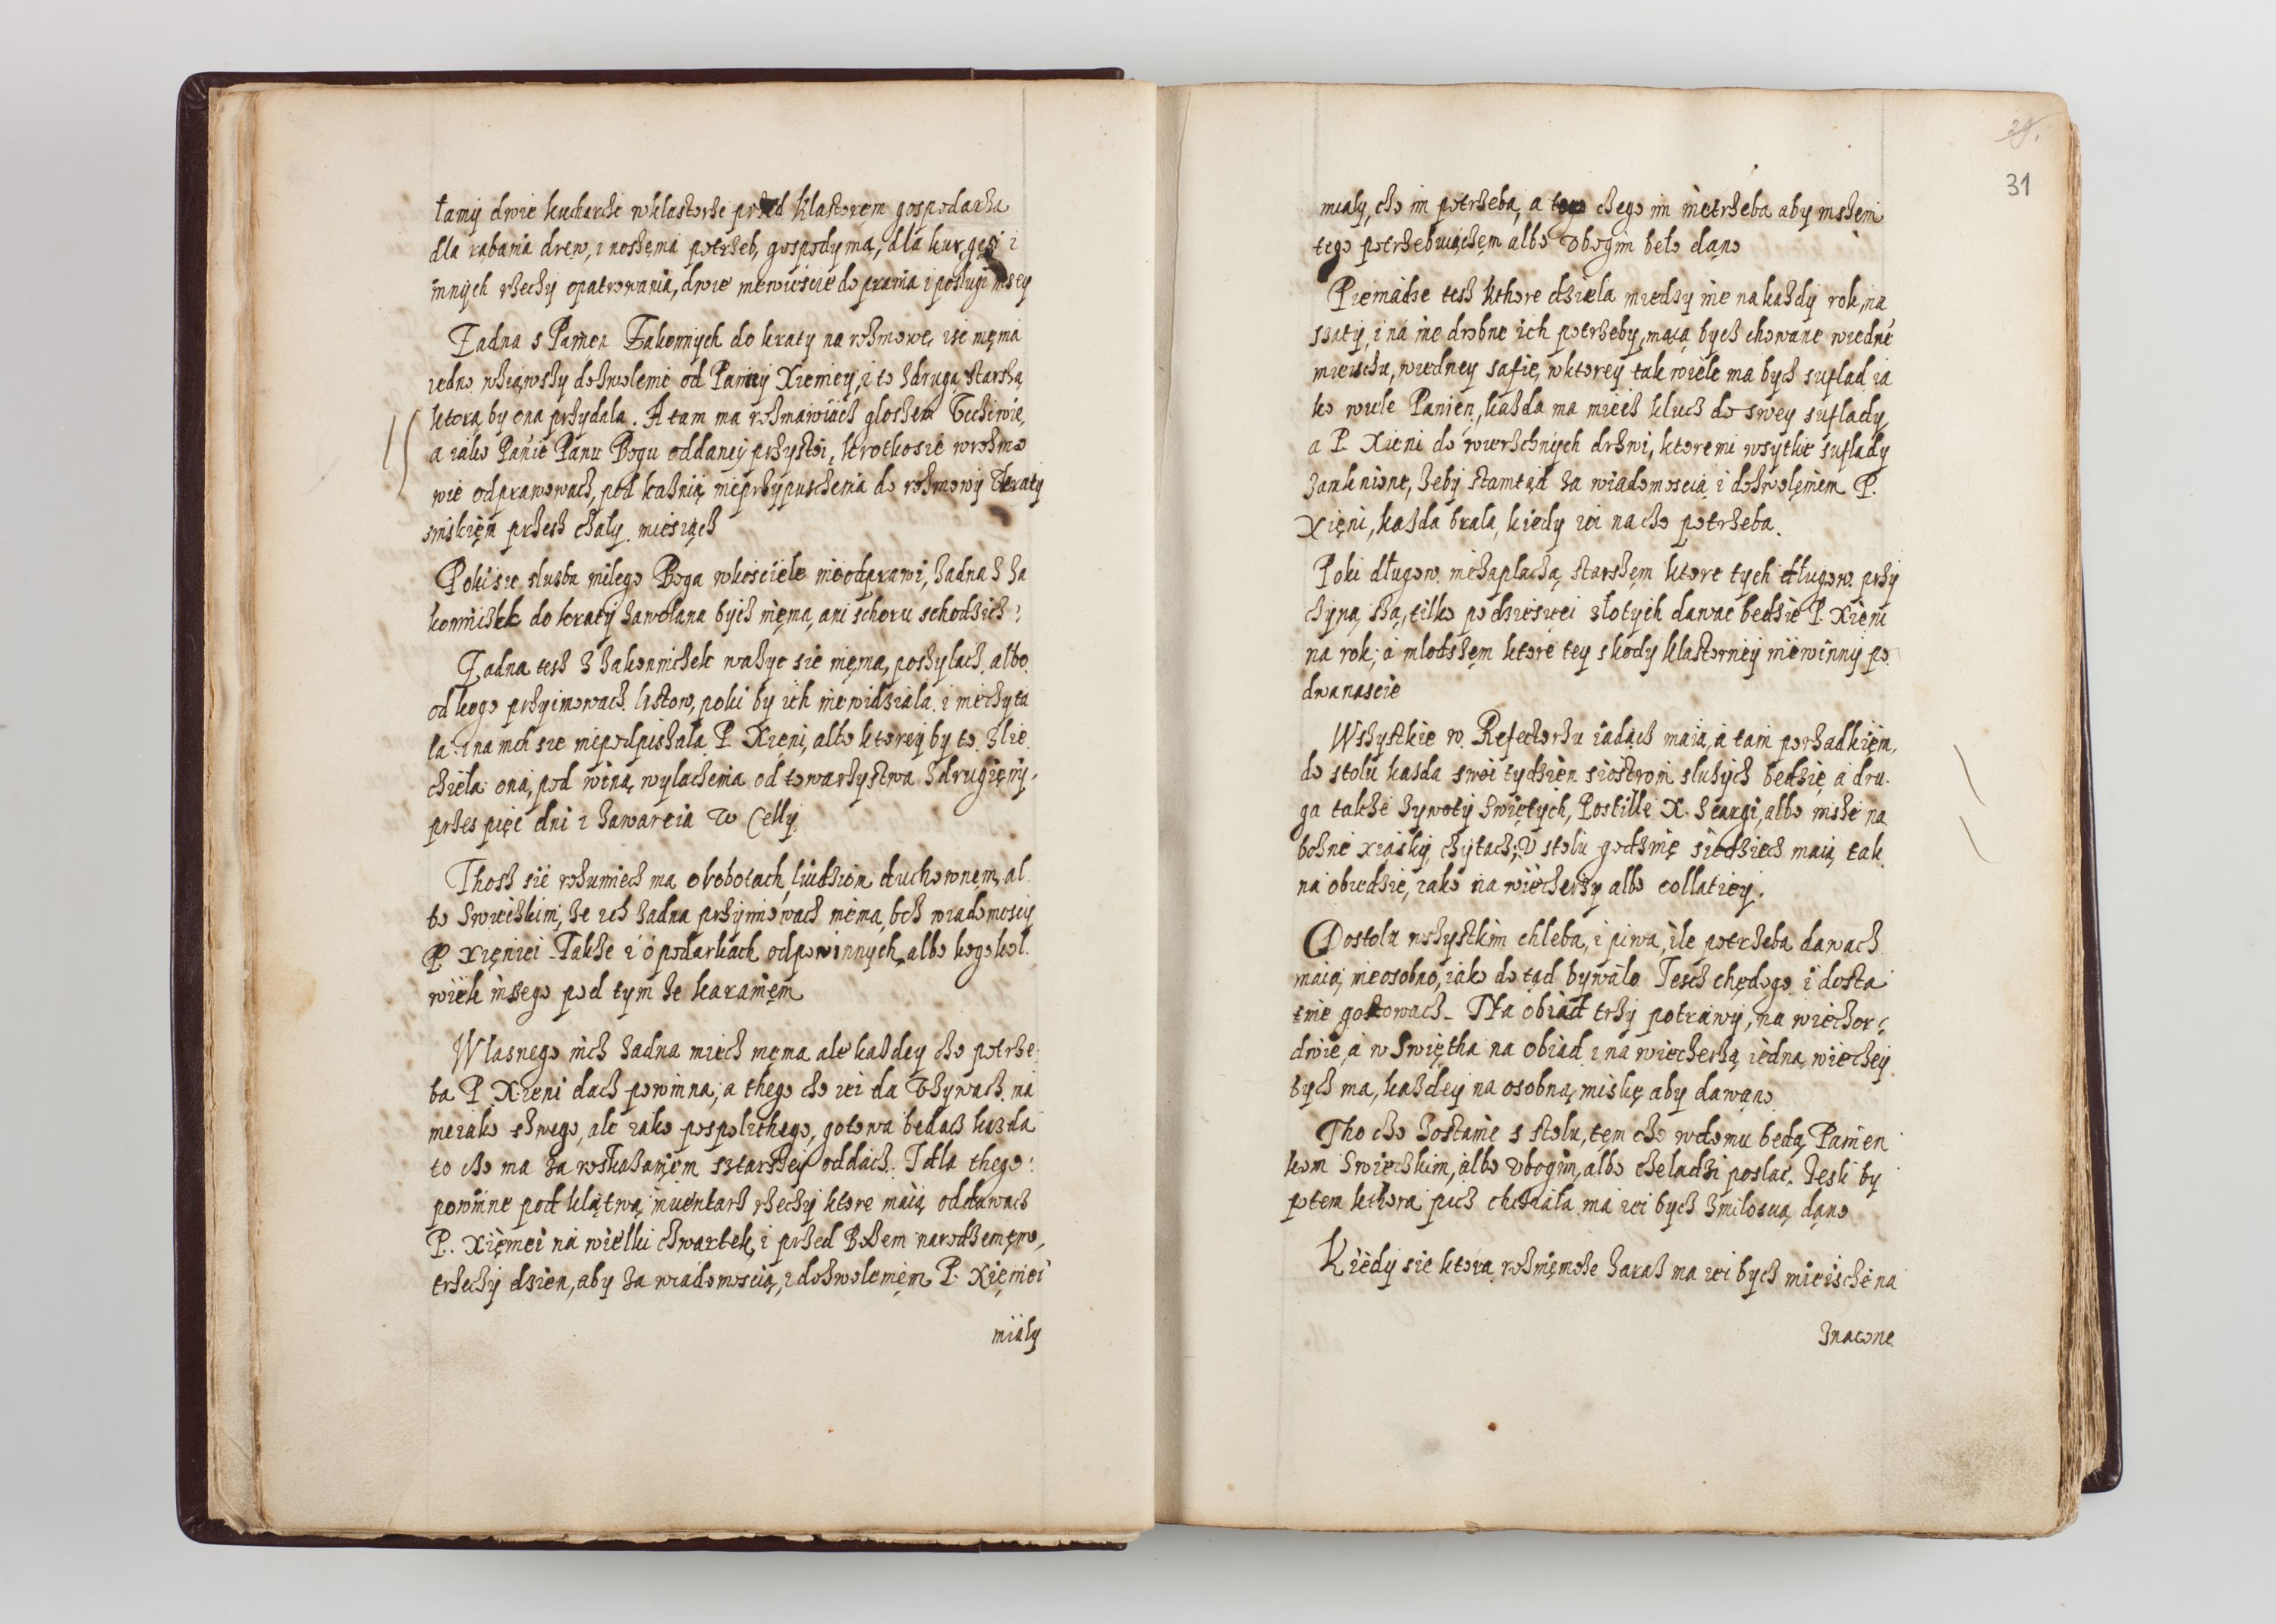 tamy dwie kucharki wklastorze przed klastorem gospodarza
dla rabania drew, i noszenia potrzeb, gospodynia, dla kur, gęsi i
innych rzeczy opatrowania, dwie niewieście do prania i posługi inszey
Żadna s Panien Zakonnych do kraty na rozmowe, iść niema
iedno wziąwszy dozwolenie od Panny Xieniey, i to zdrugą starszą
ktorą by ona przydala. A tam ma rozmawiach gloszem
a iako Panie Panu Bogu oddaney przystoi, krotko sie wrozmo
wie odprawowach, pod kaźnią nieprzypuszczenia do rozmowy Vkraty
przesz chaly miesiąch
Poki sie sluzba milego Boga wkosciele nieodprawi, żadna z za
konniczek do kraty zawolana bych niema, ani schoru schodzich:
Żadna tesz z zakonniczek wazyc sie niema, poszylach albo
od kogo przyimowach listow, poki by ich niewidziala i nieczyta
la i na nich sie niepodpiszala P. Xieni, albo ktorey by to zlie
chiela ona, pod winą wylączenia od towarzystwa zdrugięmi,
przes pięc dni i zawarcia w Celly
Thosz sie rozumiech ma o robotach liudziom duchownem, al
bo Swieczkim, że ich żadna przyimowach niema, bez wiadomoscy
P. Xięniei Takze i o podarkach odpowinnych, albo kogokol
wiek inszego pod tym że karaniem
Wlasnego nich żadna miech niema ale każdey cho potrze
ba P Xieni dach powinna, a thego cho iei da Vzywach ma
nieiako szwego, ale iako pospolithego, gotowa bedach każda
to cho ma za roskazaniem sztarszey oddach. I dla thego:
powinne pod klątwą inwentarz rzechy ktore maią oddawach
P. Xięniei na wielki chwartek, i przed Bożem narodzeniem,
trzechy dzien, aby za wiadomoscią, i dozwoleniem P. Xięniei
miały
29.
31
miały, cho im potrzeba, a tego chego im nietrzeba aby inszem
tego potrzebuiąchem albo Vbogim beło dano
Pieniądze tesz kthore dziela miedzy nie na każdy rok, na
szaty, i na ine drobne ich potrzeby, maią bych chowane wiedne
mieischu, wiedney safie, wktorey tak wiele ma bych suflad ia
ko wiele Panien, każda ma miech kluch do swey suflady
a P Xieni do wierzchnych drzwi, ktoremi wsytkie suflady
zamknione, żeby stamtąd za wiadomoscią i dozwolęniem P.
Xięni, każda brala, kiedy iei na cho potrzeba.
Poki długow niezaplachą, starszem ktore tych długow przy
chyną są, tilko po dziesięci złotych dawac bedzie P. Xieni
na rok, a mlodszem ktore tey skody klastorney niewinny po
dwanascie
Wszystkie w Refectorzu iadach maia, a tam porzadkiem,
do stolu kasda swoi tydzien siostrom sluzych bedzie, a dru
ga takze żywoty swiętych, Postille X. Skargi, albo insze na
bożne xiaszky, chytach; V stolu godzinę siedziech maią tak
na obiedzie, iako na wiecherzy albo collatiey.
Dostolu wszystkim chleba, i piwa, ile potrzeba dawach
maią, nieosobno, iako do tąd bywało Jesch chędogo i dosta
tnie gotowach. Na obiad trzy potrawy, na wiechor
dwie, a w Swiętha na obiad i na wiecherzą iedna, wiechey
bych ma, każdey na osobną miskę aby dawano
Tho cho zostanie s stolu, tem cho wdomu bedą Panien
kom Swieczkim, albo Vbogim, albo cheladzi poslac. Jesli by
potem kthora pich chciala ma iei bych zmiloscią dano
Kiedy sie ktora rozniemoże zaraz ma iei bych mieische na
znaczone